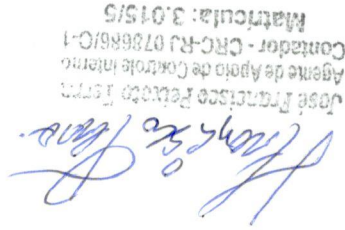 José Francisco Peixoto Ferra
Agente de Apoio de Controle Interno
Contador - CRC-RJ 078686/C-1
Matrícula: 3.015/5